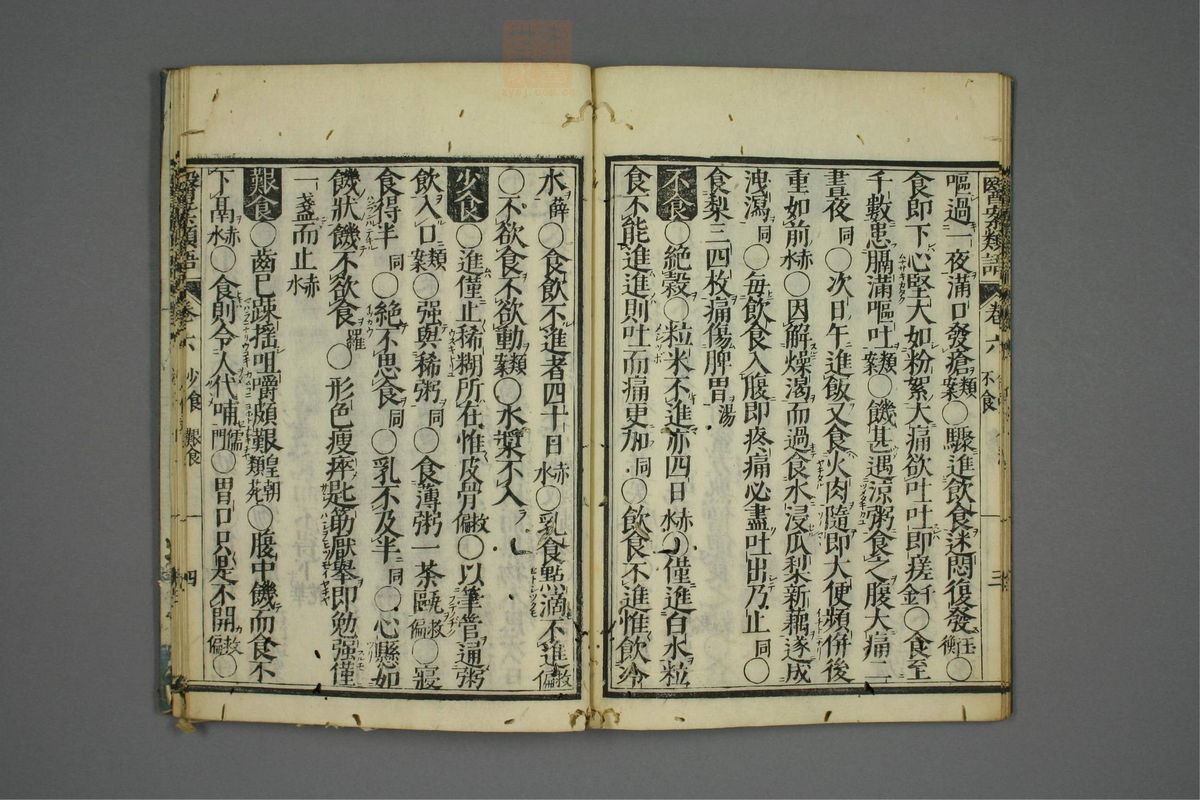 醫案類語 卷六 不食 三
嘔過一夜滿口發瘡類案〇驟進飲食迷悶復發王衡
食即下心堅大如粉絮大痛欲吐吐即瘥千金〇食至
千數患膈滿嘔吐類案〇饑甚遇涼粥食之腹大痛二
晝夜同〇次日午進飯又食火肉隨即大便頻併後
重如前赤水〇因解燥渴而過食水浸瓜梨新藕遂成
洩瀉同〇每飲食入腹即疼痛必盡吐出乃止同〇
食梨三四枚痛傷脾胃湯
不食〇絶穀〇粒米不進亦四日赤水〇僅進白水粒
食不能進進則吐而痛更加同〇飲食不進惟飲冷
水薛〇食飲不進者四十日赤水〇乳食點滴不進救偏
〇不欲食不欲動類案〇水漿不入
少食〇進僅止稀糊所在惟皮骨救偏〇以筆管通粥
飲入口類案〇强與稀粥同〇食薄粥一茶甌救偏〇寢
食得半同〇絶不思食同〇乳不及半同〇心懸如
饑狀饑不欲食羅〇形色瘦瘁匙筯厭舉即勉强僅
一盞而止赤水
艱食〇齒已踈摇咀嚼頗艱皇朝類苑〇腹中饑而食不
下鬲赤水〇食則令人代哺儒門〇胃口只是不開救偏〇
醫案類語 卷六 少食 艱食 四